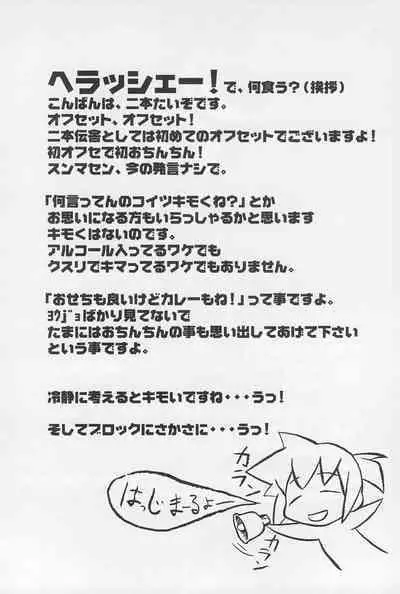 ヘラッシェー！で、何食う？（挨拶）
こんばんは、二本たいぞです。
オフセット、オフセット！
二本伝害としては初めてのオフセットでございますよ！
初オフセで初おちんちん！
スンマセン、今の発言ナシで。
「何言ってんのコイツキモくね？」とか
お思いになる方もいらっしゃるかと思います
キモくはないのです。
アルコール入ってるワケでも
クスリでキマってるワケでもありません。
「おせちも良いけどカレーもね！」って事ですよ。
ﾖｳｼﾞｮばかり見てないで
たまにはおちんちんの事も思い出してあげて下さい
という事ですよ。
冷静に考えるとキモいですね・・・うっ！
そしてブロックにさかさに・・・うっ！
カラン
はっじまーるよー
カラン